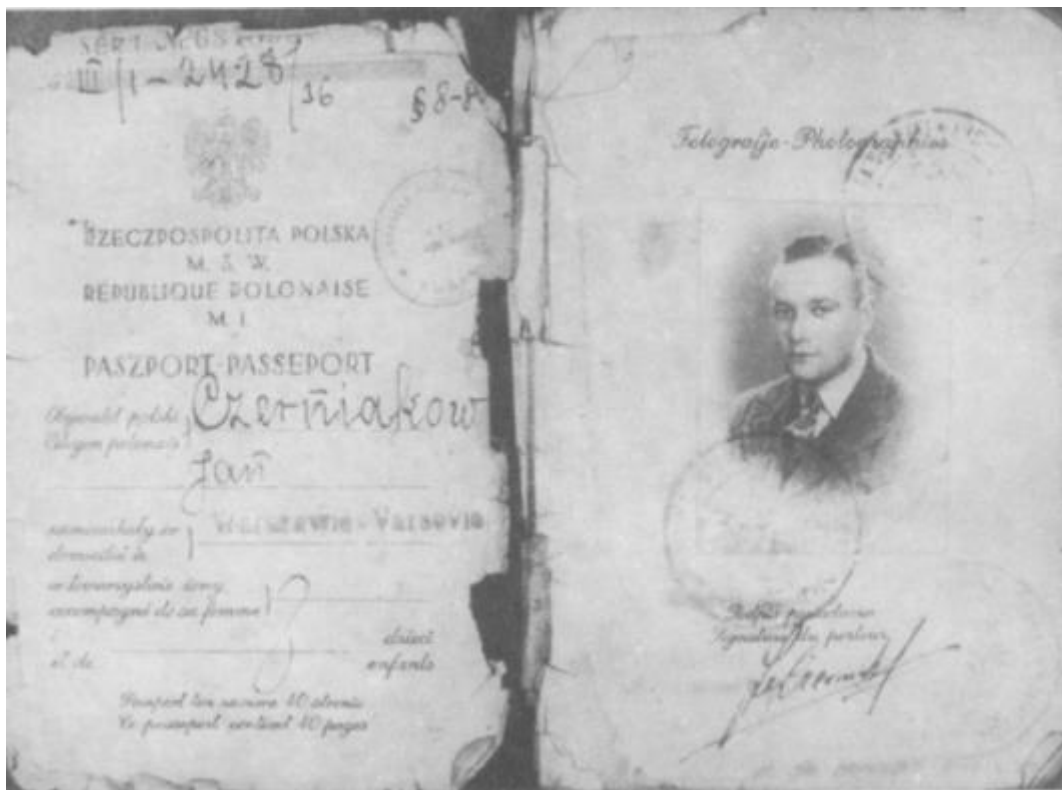 III/1-2428/36 § 8-8
RZECZPOSPOLITA POLSKA
M. S. W.
RÉPUBLIQUE POLONAISE
M. I.
PASZPORT-PASSEPORT
Obywatel polski
Citoyen polonais
Czerniakow
Jan
zamieszkały w
domicilié à
Warszawie - Varsovie
w towarzystwie żony
accompagné de sa femme
i dzieci
et de enfants
Paszport ten zawiera 40 stronic
Ce passeport contient 40 pages
Fotografje-Photographies
Podpis posiadacza
Signature du porteur